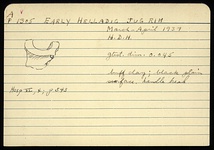 A V
P 1305 EARLY HELLADIC JUG RIM
March-April 1937
H.D.H.
gtst. dim. 0.045
buff clay; black stain
surface. handle break
Hesp VI, 4, p 543